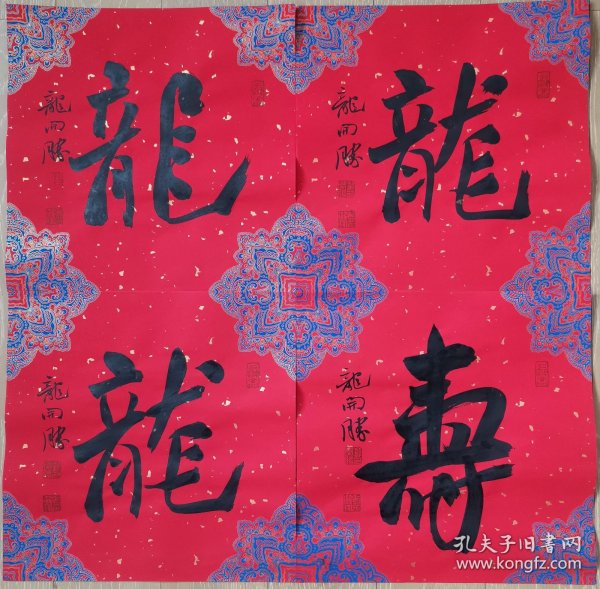 龍
龍開勝
龍
龍開勝
龍
龍開勝
壽
龍開勝
孔夫子旧书网
www.kongfz.com